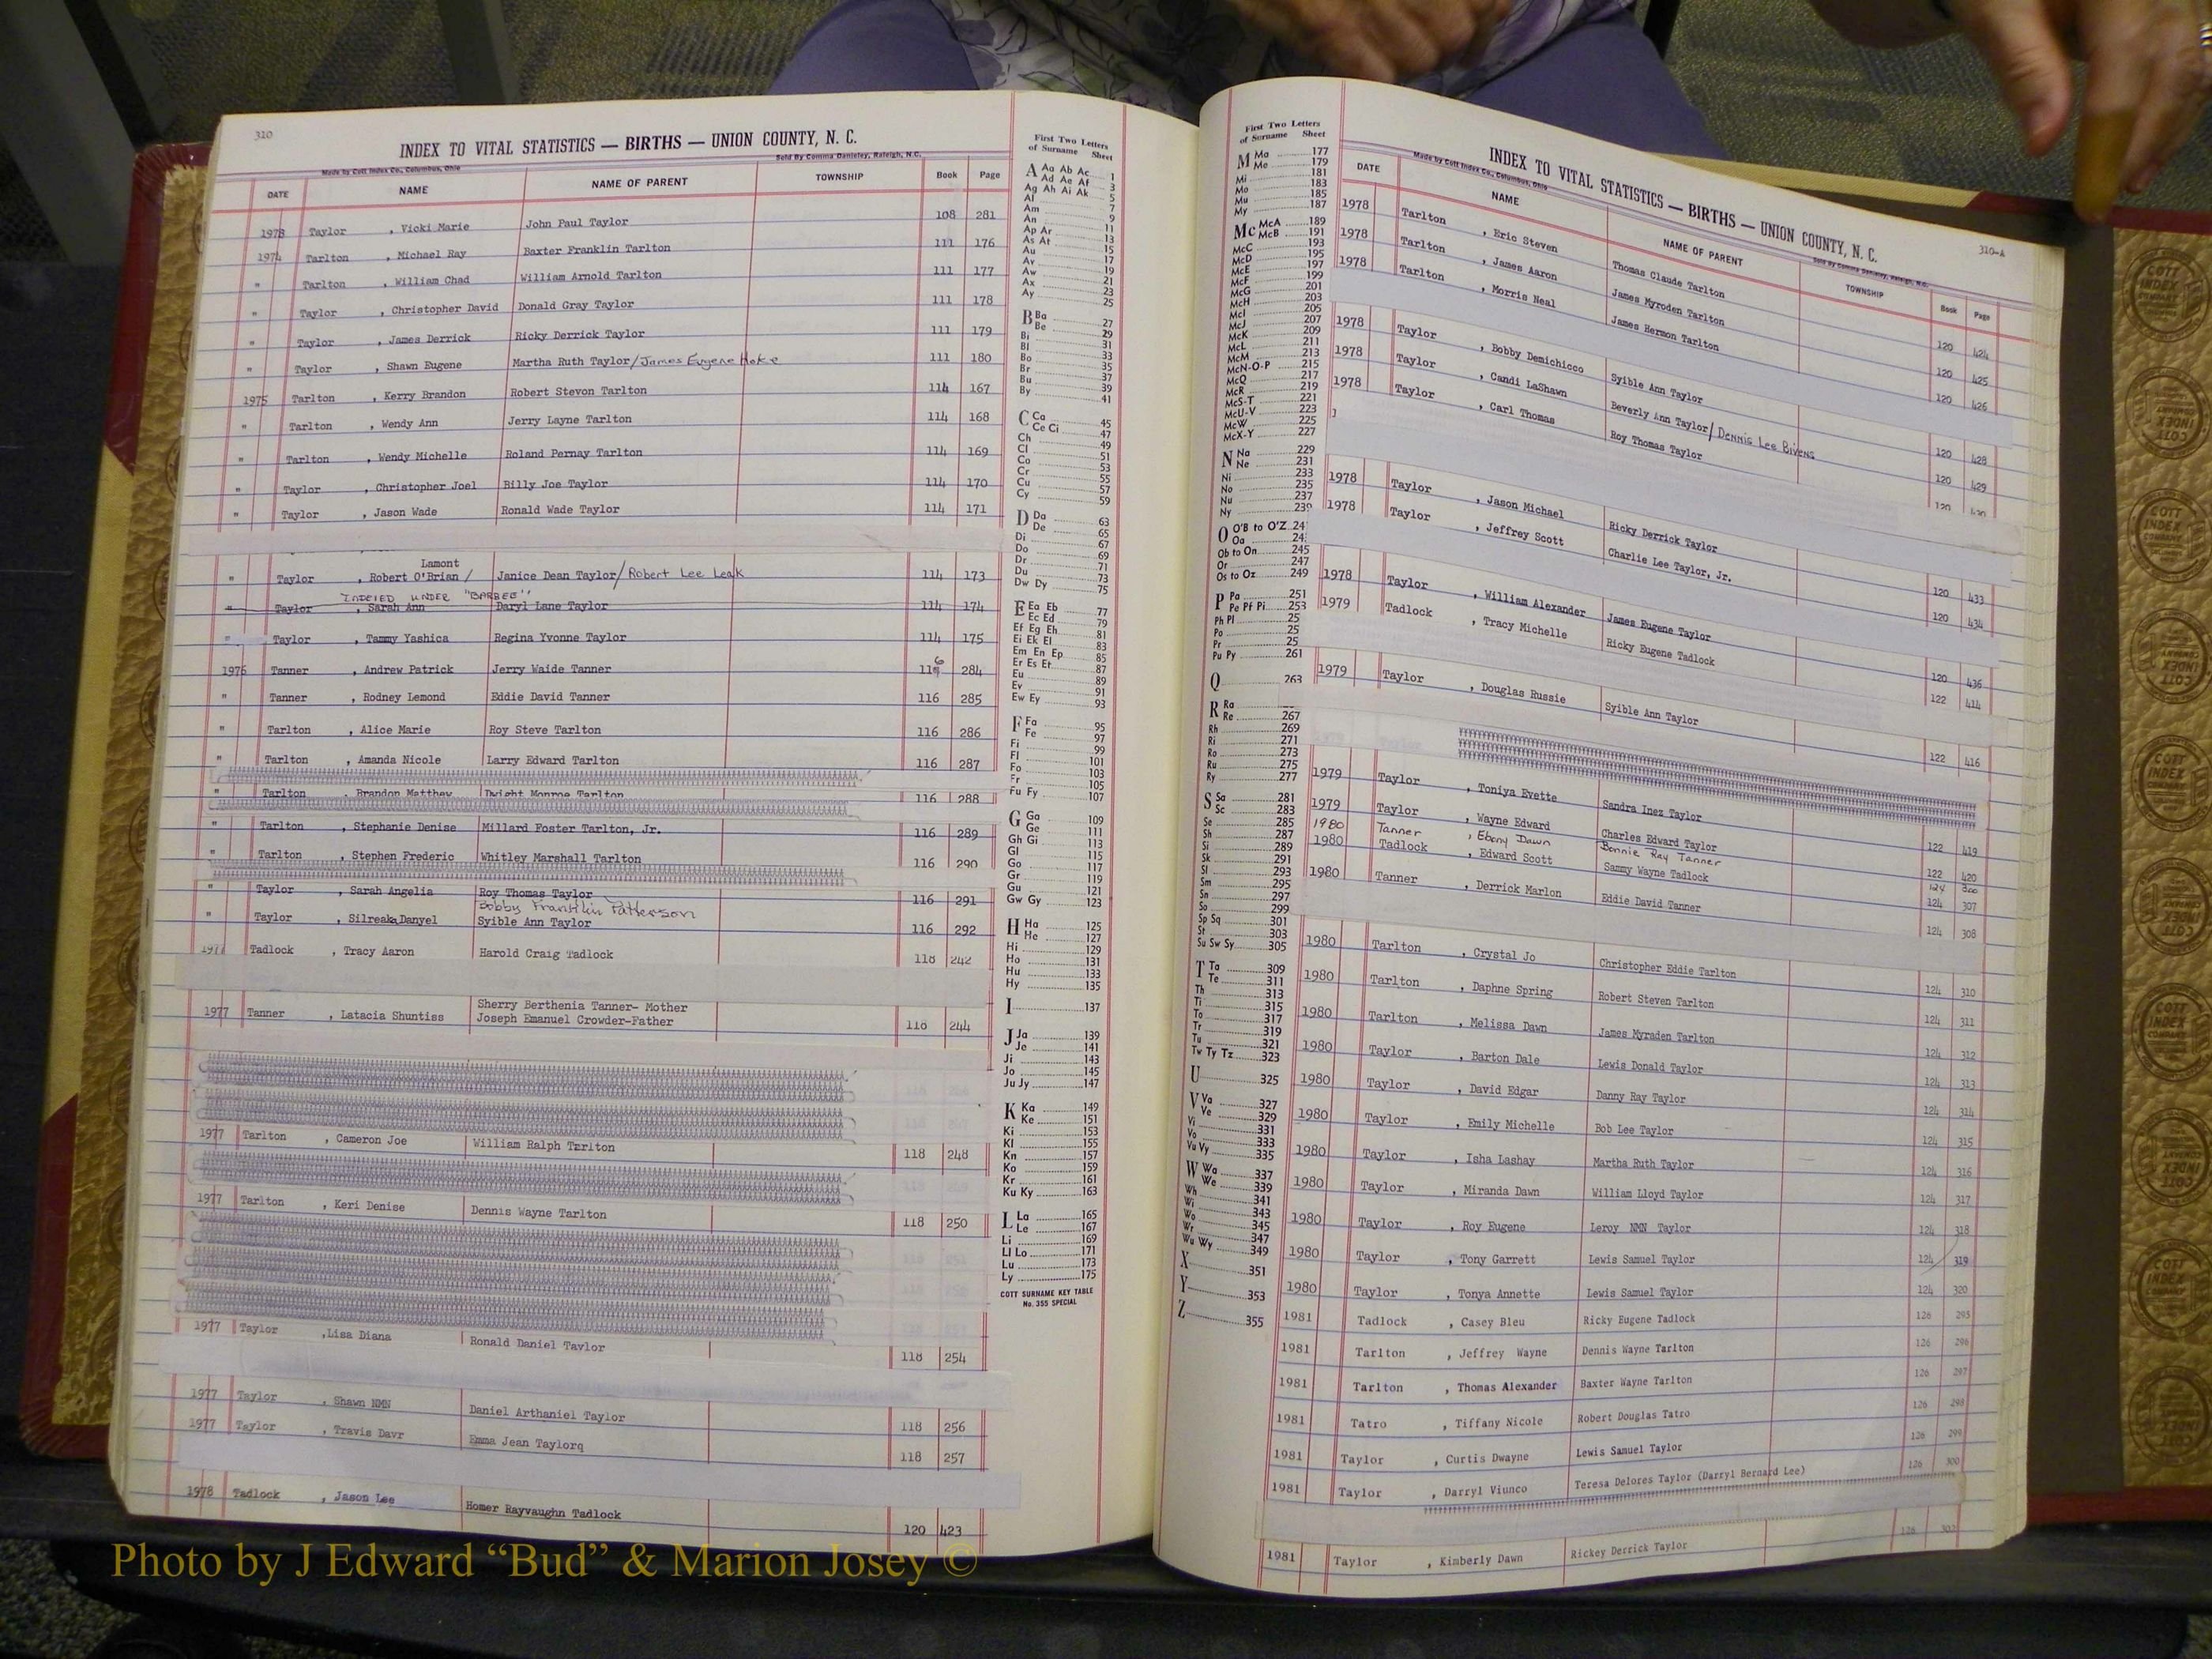 310
INDEX TO VITAL STATISTICS — BIRTHS — UNION COUNTY, N. C.
Made by Cott Index Co., Columbus, Ohio Sold By Comma Danieley, Raleigh, N.C.
DATE NAME NAME OF PARENT TOWNSHIP Book Page
1973 Taylor , Vicki Marie John Paul Taylor 108 281
1974 Tarlton , Michael Ray Baxter Franklin Tarlton 111 176
" Tarlton , William Chad William Arnold Tarlton 111 177
" Taylor , Christopher David Donald Gray Taylor 111 178
" Taylor , James Derrick Ricky Derrick Taylor 111 179
" Taylor , Shawn Eugene Martha Ruth Taylor/James Eugene Hoke 111 180
1975 Tarlton , Kerry Brandon Robert Stevon Tarlton 114 167
" Tarlton , Wendy Ann Jerry Layne Tarlton 114 168
" Tarlton , Wendy Michelle Roland Pernay Tarlton 114 169
" Taylor , Christopher Joel Billy Joe Taylor 114 170
" Taylor , Jason Wade Ronald Wade Taylor 114 171
Lamont
" Taylor , Robert O'Brian / Janice Dean Taylor/Robert Lee Leak 114 173
INDEXED UNDER "BARBEE"
" Taylor , Sarah Ann Daryl Lane Taylor 114 174
" Taylor , Tammy Yashica Regina Yvonne Taylor 114 175
1976 Tanner , Andrew Patrick Jerry Waide Tanner 116 284
" Tanner , Rodney Lemond Eddie David Tanner 116 285
" Tarlton , Alice Marie Roy Steve Tarlton 116 286
" Tarlton , Amanda Nicole Larry Edward Tarlton 116 287
" Tarlton , Brandon Matthew Dwight Monroe Tarlton 116 288
" Tarlton , Stephanie Denise Millard Foster Tarlton, Jr. 116 289
" Tarlton , Stephen Frederic Whitley Marshall Tarlton 116 290
" Taylor , Sarah Angelia Roy Thomas Taylor 116 291
Bobby Franklin Patterson
" Taylor , Silreaka Danyel Syible Ann Taylor 116 292
1977 Tadlock , Tracy Aaron Harold Craig Tadlock 118 242
Sherry Berthenia Tanner- Mother
1977 Tanner , Latacia Shuntiss Joseph Emanuel Crowder-Father 118 244
1977 Tarlton , Cameron Joe William Ralph Tarlton 118 248
1977 Tarlton , Keri Denise Dennis Wayne Tarlton 118 250
1977 Taylor ,Lisa Diana Ronald Daniel Taylor 118 254
1977 Taylor , Shawn NMN Daniel Arthaniel Taylor 118 256
1977 Taylor , Travis Davr Emma Jean Taylorq 118 257
1978 Tadlock , Jason Lee Homer Rayvaughn Tadlock 120 423
First Two Letters
of Surname Sheet
A Aa Ab Ac 1
Ad Ae Af 3
Ag Ah Ai Ak 5
Al 7
Am 9
An 11
Ap Ar 13
As At 15
Au 17
Av 19
Aw 21
Ax 23
Ay 25
B Ba 27
Be 29
Bi 31
Bl 33
Bo 35
Br 37
Bu 39
By 41
C Ca 45
Ce Ci 47
Ch 49
Cl 51
Co 53
Cr 55
Cu 57
Cy 59
D Da 63
De 65
Di 67
Do 69
Dr 71
Du 73
Dw Dy 75
E Ea Eb 77
Ec Ed 79
Ef Eg Eh 81
Ei Ek El 83
Em En Ep 85
Er Es Et 87
Eu 89
Ev 91
Ew Ey 93
F Fa 95
Fe 97
Fi 99
Fl 101
Fo 103
Fr 105
Fu Fy 107
G Ga 109
Ge 111
Gh Gi 113
Gl 115
Go 117
Gr 119
Gu 121
Gw Gy 123
H Ha 125
He 127
Hi 129
Ho 131
Hu 133
Hy 135
I 137
J Ja 139
Je 141
Ji 143
Jo 145
Ju Jy 147
K Ka 149
Ke 151
Ki 153
Kl 155
Kn 157
Ko 159
Kr 161
Ku Ky 163
L La 165
Le 167
Li 169
Ll Lo 171
Lu 173
Ly 175
COTT SURNAME KEY TABLE
No. 355 SPECIAL
First Two Letters
of Surname Sheet
M Ma 177
Me 179
Mi 181
Mo 183
Mu 185
My 187
Mc McA 189
McB 191
McC 193
McD 195
McE 197
McF 199
McG 201
McH 203
McI 205
McJ 207
McK 209
McL 211
McM 213
McN-O-P 215
McQ 217
McR 219
McS-T 221
McU-V 223
McW 225
McX-Y 227
N Na 229
Ne 231
Ni 233
No 235
Nu 237
Ny 239
O O'B to O'Z 24
Oa 24
Ob to On 245
Or 247
Os to Oz 249
P Pa 251
Pe Pf Pi 253
Ph Pl 25
Po 25
Pr 25
Pu Py 261
Q 263
R Ra
Re 267
Rh 269
Ri 271
Ro 273
Ru 275
Ry 277
S Sa 281
Sc 283
Se 285
Sh 287
Si 289
Sk 291
Sl 293
Sm 295
Sn 297
So 299
Sp Sq 301
St 303
Su Sw Sy 305
T Ta 309
Te 311
Th 313
Ti 315
To 317
Tr 319
Tu 321
Tw Ty Tz 323
U 325
V Va 327
Ve 329
Vi 331
Vo 333
Vu Vy 335
W Wa 337
We 339
Wh 341
Wi 343
Wo 345
Wr 347
Wu Wy 349
X 351
Y 353
Z 355
310-A
INDEX TO VITAL STATISTICS — BIRTHS — UNION COUNTY, N. C.
Made by Cott Index Co., Columbus, Ohio Sold By Comma Danieley, Raleigh, N.C.
DATE NAME NAME OF PARENT TOWNSHIP Book Page
1978 Tarlton , Eric Steven Thomas Claude Tarlton 120 424
1978 Tarlton , James Aaron James Myroden Tarlton 120 425
1978 Tarlton , Morris Neal James Hermon Tarlton 120 426
1978 Taylor , Bobby Demichicco Syible Ann Taylor 120 428
1978 Taylor , Candi LaShawn Beverly Ann Taylor/Dennis Lee Bivens 120 429
1978 Taylor , Carl Thomas Roy Thomas Taylor 120 430
1978 Taylor , Jason Michael Ricky Derrick Taylor 120 433
1978 Taylor , Jeffrey Scott Charlie Lee Taylor, Jr. 120 434
1978 Taylor , William Alexander James Eugene Taylor 120 436
1979 Tadlock , Tracy Michelle Ricky Eugene Tadlock 122 414
1979 Taylor , Douglas Russie Syible Ann Taylor 122 416
1979 Taylor , Toniya Evette Sandra Inez Taylor 122 419
1979 Taylor , Wayne Edward Charles Edward Taylor 122 420
1980 Tanner , Ebony Dawn Bonnie Ray Tanner 124 300
1980 Tadlock , Edward Scott Sammy Wayne Tadlock 124 307
1980 Tanner , Derrick Marlon Eddie David Tanner 124 308
1980 Tarlton , Crystal Jo Christopher Eddie Tarlton 124 310
1980 Tarlton , Daphne Spring Robert Steven Tarlton 124 311
1980 Tarlton , Melissa Dawn James Myraden Tarlton 124 312
1980 Taylor , Barton Dale Lewis Donald Taylor 124 313
1980 Taylor , David Edgar Danny Ray Taylor 124 314
1980 Taylor , Emily Michelle Bob Lee Taylor 124 315
1980 Taylor , Isha Lashay Martha Ruth Taylor 124 316
1980 Taylor , Miranda Dawn William Lloyd Taylor 124 317
1980 Taylor , Roy Eugene Leroy NMN Taylor 124 318
1980 Taylor , Tony Garrett Lewis Samuel Taylor 124 319
1980 Taylor , Tonya Annette Lewis Samuel Taylor 124 320
1981 Tadlock , Casey Bleu Ricky Eugene Tadlock 126 295
1981 Tarlton , Jeffrey Wayne Dennis Wayne Tarlton 126 296
1981 Tarlton , Thomas Alexander Baxter Wayne Tarlton 126 297
1981 Tatro , Tiffany Nicole Robert Douglas Tatro 126 298
1981 Taylor , Curtis Dwayne Lewis Samuel Taylor 126 299
1981 Taylor , Darryl Viunco Teresa Delores Taylor (Darryl Bernard Lee) 126 300
1981 Taylor , Kimberly Dawn Rickey Derrick Taylor 126 302
Photo by J Edward “Bud” & Marion Josey ©